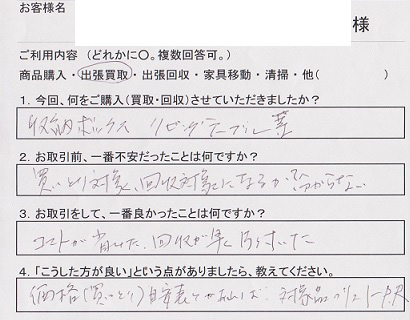 お客様名
様
ご利用内容 (どれかに〇。複数回答可。)
商品購入・出張買取・出張回収・家具移動・清掃・他( )
1. 今回、何をご購入(買取・回収)させていただきましたか?
収納ボックス リビングテーブル 等
2. お取引前、一番不安だったことは何ですか?
買いとり対象、回収対象になるか分からない
3. お取引をして、一番良かったことは何ですか?
コストが省けた、回収が早く片付いた
4. 「こうした方が良い」という点がありましたら、教えてください。
価格(買いとり)目安表とかあれば 対象品のリストPR